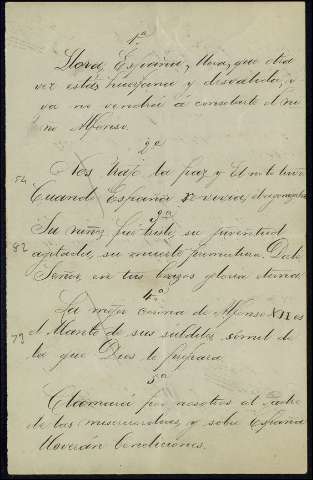 1ª
Llora, España, llora, que otra
vez estás huerfana y desvalida, y
ya no vendrá á consolarte el
no Alfonso.
2ª
Nos trajo la paz y El no la tuvo
54
Cuando España se veia,
3ª
Su niñez fué triste, su juventud
82
agitada, su muerte prematura. Dale
Señor, en tus brazos gloria eterna.
4ª
La mejor corona de Alfonso XII es
79
el llanto de sus subditos, señal de
la que Dios le prepara.
5ª
Clamará por nosotros al Padre
de las misericordias, y sobre España
lloverán bendiciones.